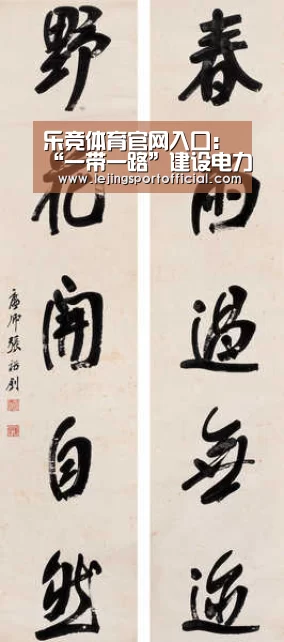 乐竞体育官网入口：
“一带一路”建设电力
www.lejingsportofficial.com
春雨過無迹
野花開自然
廉卿張裕釗